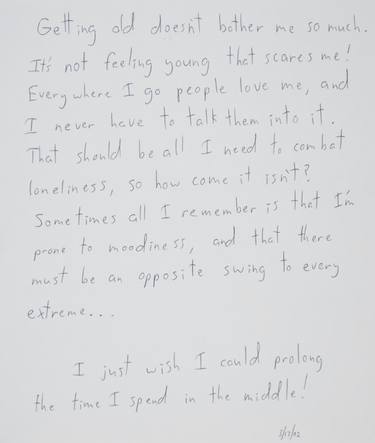 Getting old doesn't bother me so much.
It's not feeling young that scares me!
Everywhere I go people love me, and
I never have to talk them into it.
That should be all I need to combat
loneliness, so how come it isn't?
Sometimes all I remember is that I'm
prone to moodiness, and that there
must be an opposite swing to every
extreme...
I just wish I could prolong
the time I spend in the middle!